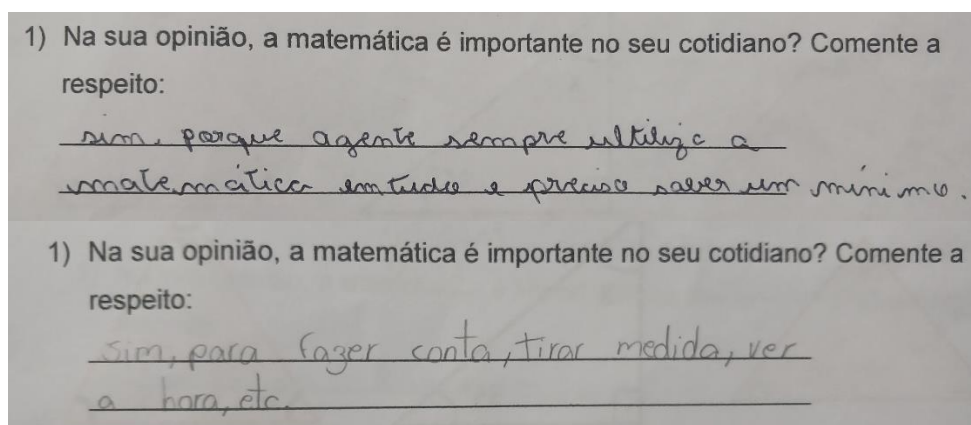 1) Na sua opinião, a matemática é importante no seu cotidiano? Comente a
respeito:
sim, porque agente sempre ultiliza a
matemática em tudo e preciso saber um mínimo.
1) Na sua opinião, a matemática é importante no seu cotidiano? Comente a
respeito:
sim, para fazer conta, tirar medida, ver
a hora, etc.